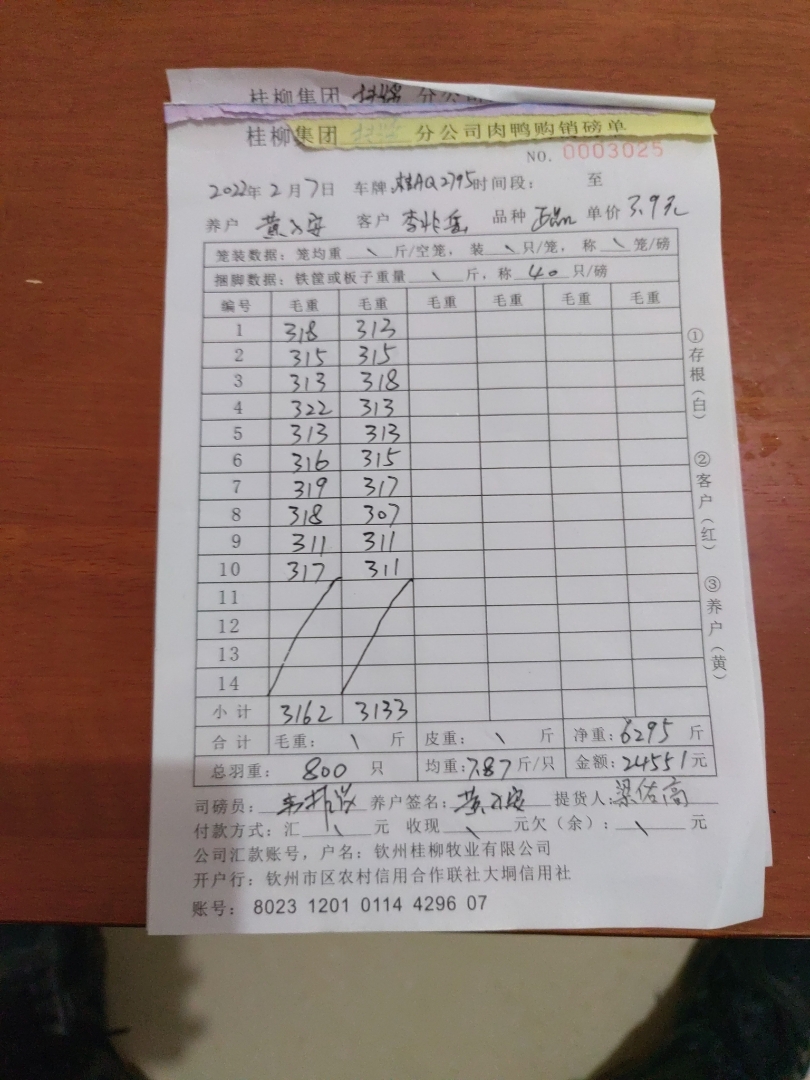 桂柳集团 分公
桂柳集团 分公司肉鸭购销磅单
NO. 0003025
2022年 2月 7日 车牌:桂AQ2795 时间段: 至
养户 黄 安 客户 李 品种 正品 单价 3.9元
笼装数据: 笼均重 \ 斤/空笼, 装 \ 只/笼, 称 \ 笼/磅
捆脚数据: 铁筐或板子重量 \ 斤, 称 40 只/磅
编号 毛重 毛重 毛重 毛重 毛重 毛重
1 318 313
2 315 315
3 313 318
4 322 313
5 313 313
6 316 315
7 319 317
8 318 307
9 311 311
10 317 311
11
12
13
14
小计 3162 3133
合计 毛重: \ 斤 皮重: \ 斤 净重: 6295 斤
总羽重: 800 只 均重: 7.87 斤/只 金额: 24551 元
司磅员: 养户签名: 黄 安 提货人: 梁佑高
付款方式: 汇 \ 元 收现 \ 元欠(余): \ 元
公司汇款账号, 户名: 钦州桂柳牧业有限公司
开户行: 钦州市区农村信用合作联社大垌信用社
账号: 8023 1201 0114 4296 07
①存根(白)
②客户(红)
③养户(黄)